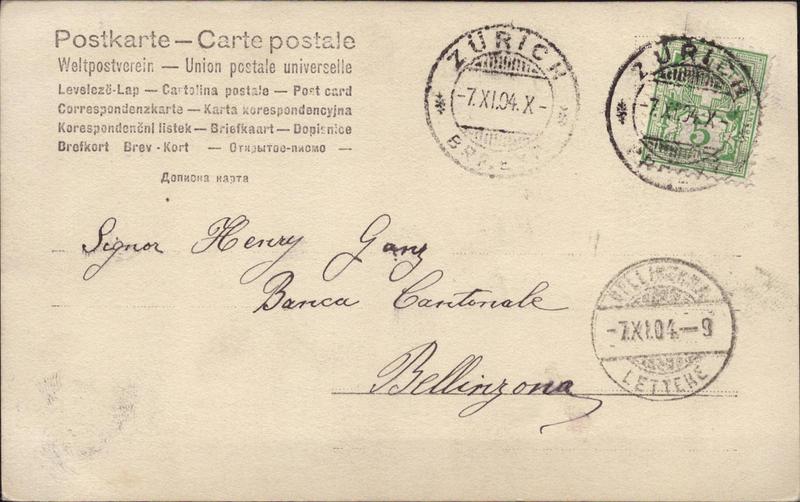 Postkarte — Carte postale
Weltpostverein — Union postale universelle
Levelező-Lap — Cartolina postale — Post card
Correspondenzkarte — Karta korespondencyjna
Korespondenční listek — Briefkaart — Dopisnice
Brefkort Brev-Kort — Открытое-писмо —
Дописна карта
ZÜRICH
-7.XI.04.X-
ZÜRICH
-7.XI.04.X-
5
Signor Henry Ganz
Banca Cantonale
Bellinzona
BELLINZONA
-7.XI.04.-9
LETTERE